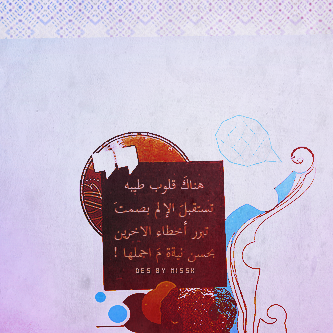 هناكَ قلوب طيبه
تستقبل الإلم بصمتَ
تبرر أخطاء الاخرين
بحسن نيةة مَ اجملها !
DES BY MISSK